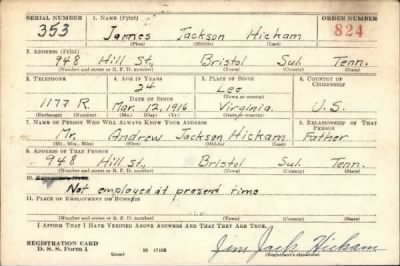 SERIAL NUMBER 1. NAME (Print) ORDER NUMBER
353 James Jackson Hickam 824
(First) (Middle) (Last)
2. ADDRESS (Print)
948 Hill St, Bristol Sul. Tenn.
(Number and street or R. F. D. number) (Town) (County) (State)
3. TELEPHONE 4. AGE IN YEARS 5. PLACE OF BIRTH 6. COUNTRY OF CITIZENSHIP
24 Lee
DATE OF BIRTH (Town or county)
1177 R Mar. 12, 1916 Virginia. U.S.
(Exchange) (Number) (Mo.) (Day) (Yr.) (State or country)
7. NAME OF PERSON WHO WILL ALWAYS KNOW YOUR ADDRESS 8. RELATIONSHIP OF THAT PERSON
Mr. Andrew Jackson Hickam Father
(Mr., Mrs., Miss) (First) (Middle) (Last)
9. ADDRESS OF THAT PERSON
948 Hill St, Bristol Sul. Tenn.
(Number and street or R. F. D. number) (Town) (County) (State)
10.
Not employed at present time
11. PLACE OF EMPLOYMENT OR BUSINESS
(Number and street or R. F. D. number) (Town) (County) (State)
I AFFIRM THAT I HAVE VERIFIED ABOVE ANSWERS AND THAT THEY ARE TRUE.
REGISTRATION CARD
D. S. S. Form 1 (over) 16
Jim Jack Hickam
(Registrant's signature)